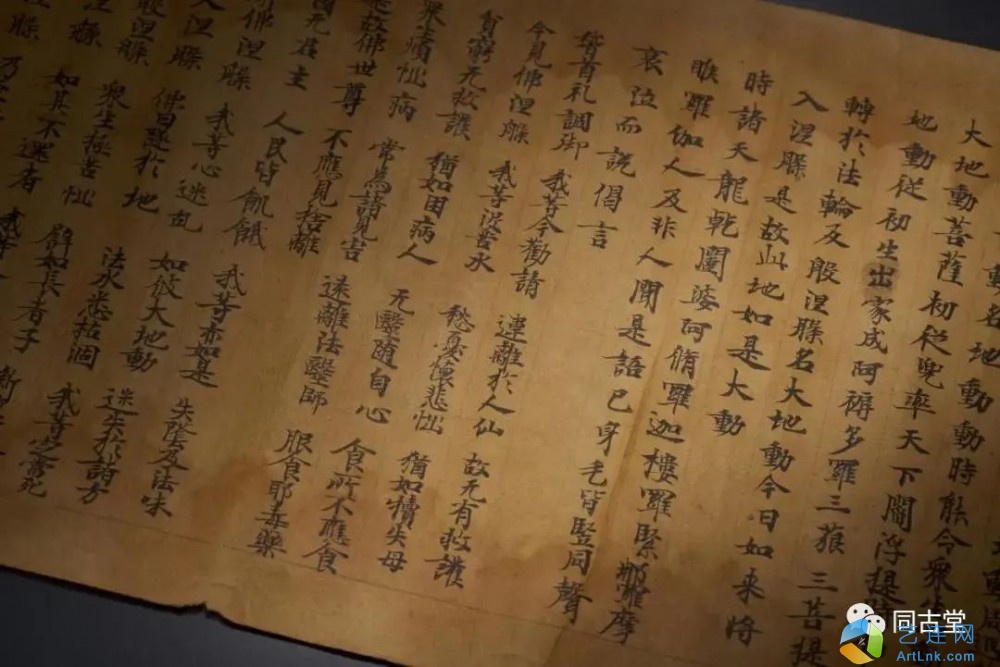 動名地動動時能令衆
大地動菩薩初從兜率天下閻浮提
地動從初生出家成阿耨多羅三藐三菩提
轉於法輪及般涅槃名大地動今日如来將
入涅槃是故此地如是大動
時諸天龍乾闥婆阿脩羅迦樓羅緊那羅摩
睺羅伽人及非人聞是語已身毛皆竪同聲
哀泣而說偈言
稽首礼調御 我等今勸請 違離於人仙 故无有救護
今見佛涅槃 我等没苦水 愁憂懷悲惱 猶如犢失母
貧窮无救護 猶如困病人 无醫隨自心 食所不應食
衆生煩惱病 常為諸見害 遠離法醫師 服食耶毒藥
是故佛世尊 不應見捨離
國无君主 人民皆飢餓 我等亦如是 失蔭及法味
佛涅槃 我等心迷乱 如彼大地動 迷失於諸方
入涅槃 佛日墜於地 法水悉枯涸 我等定當死
涅槃 衆生極苦惱 譬如長者子 新
涅槃 如其不還者 我等
乃
同古堂
艺连网
ArtLnk.com